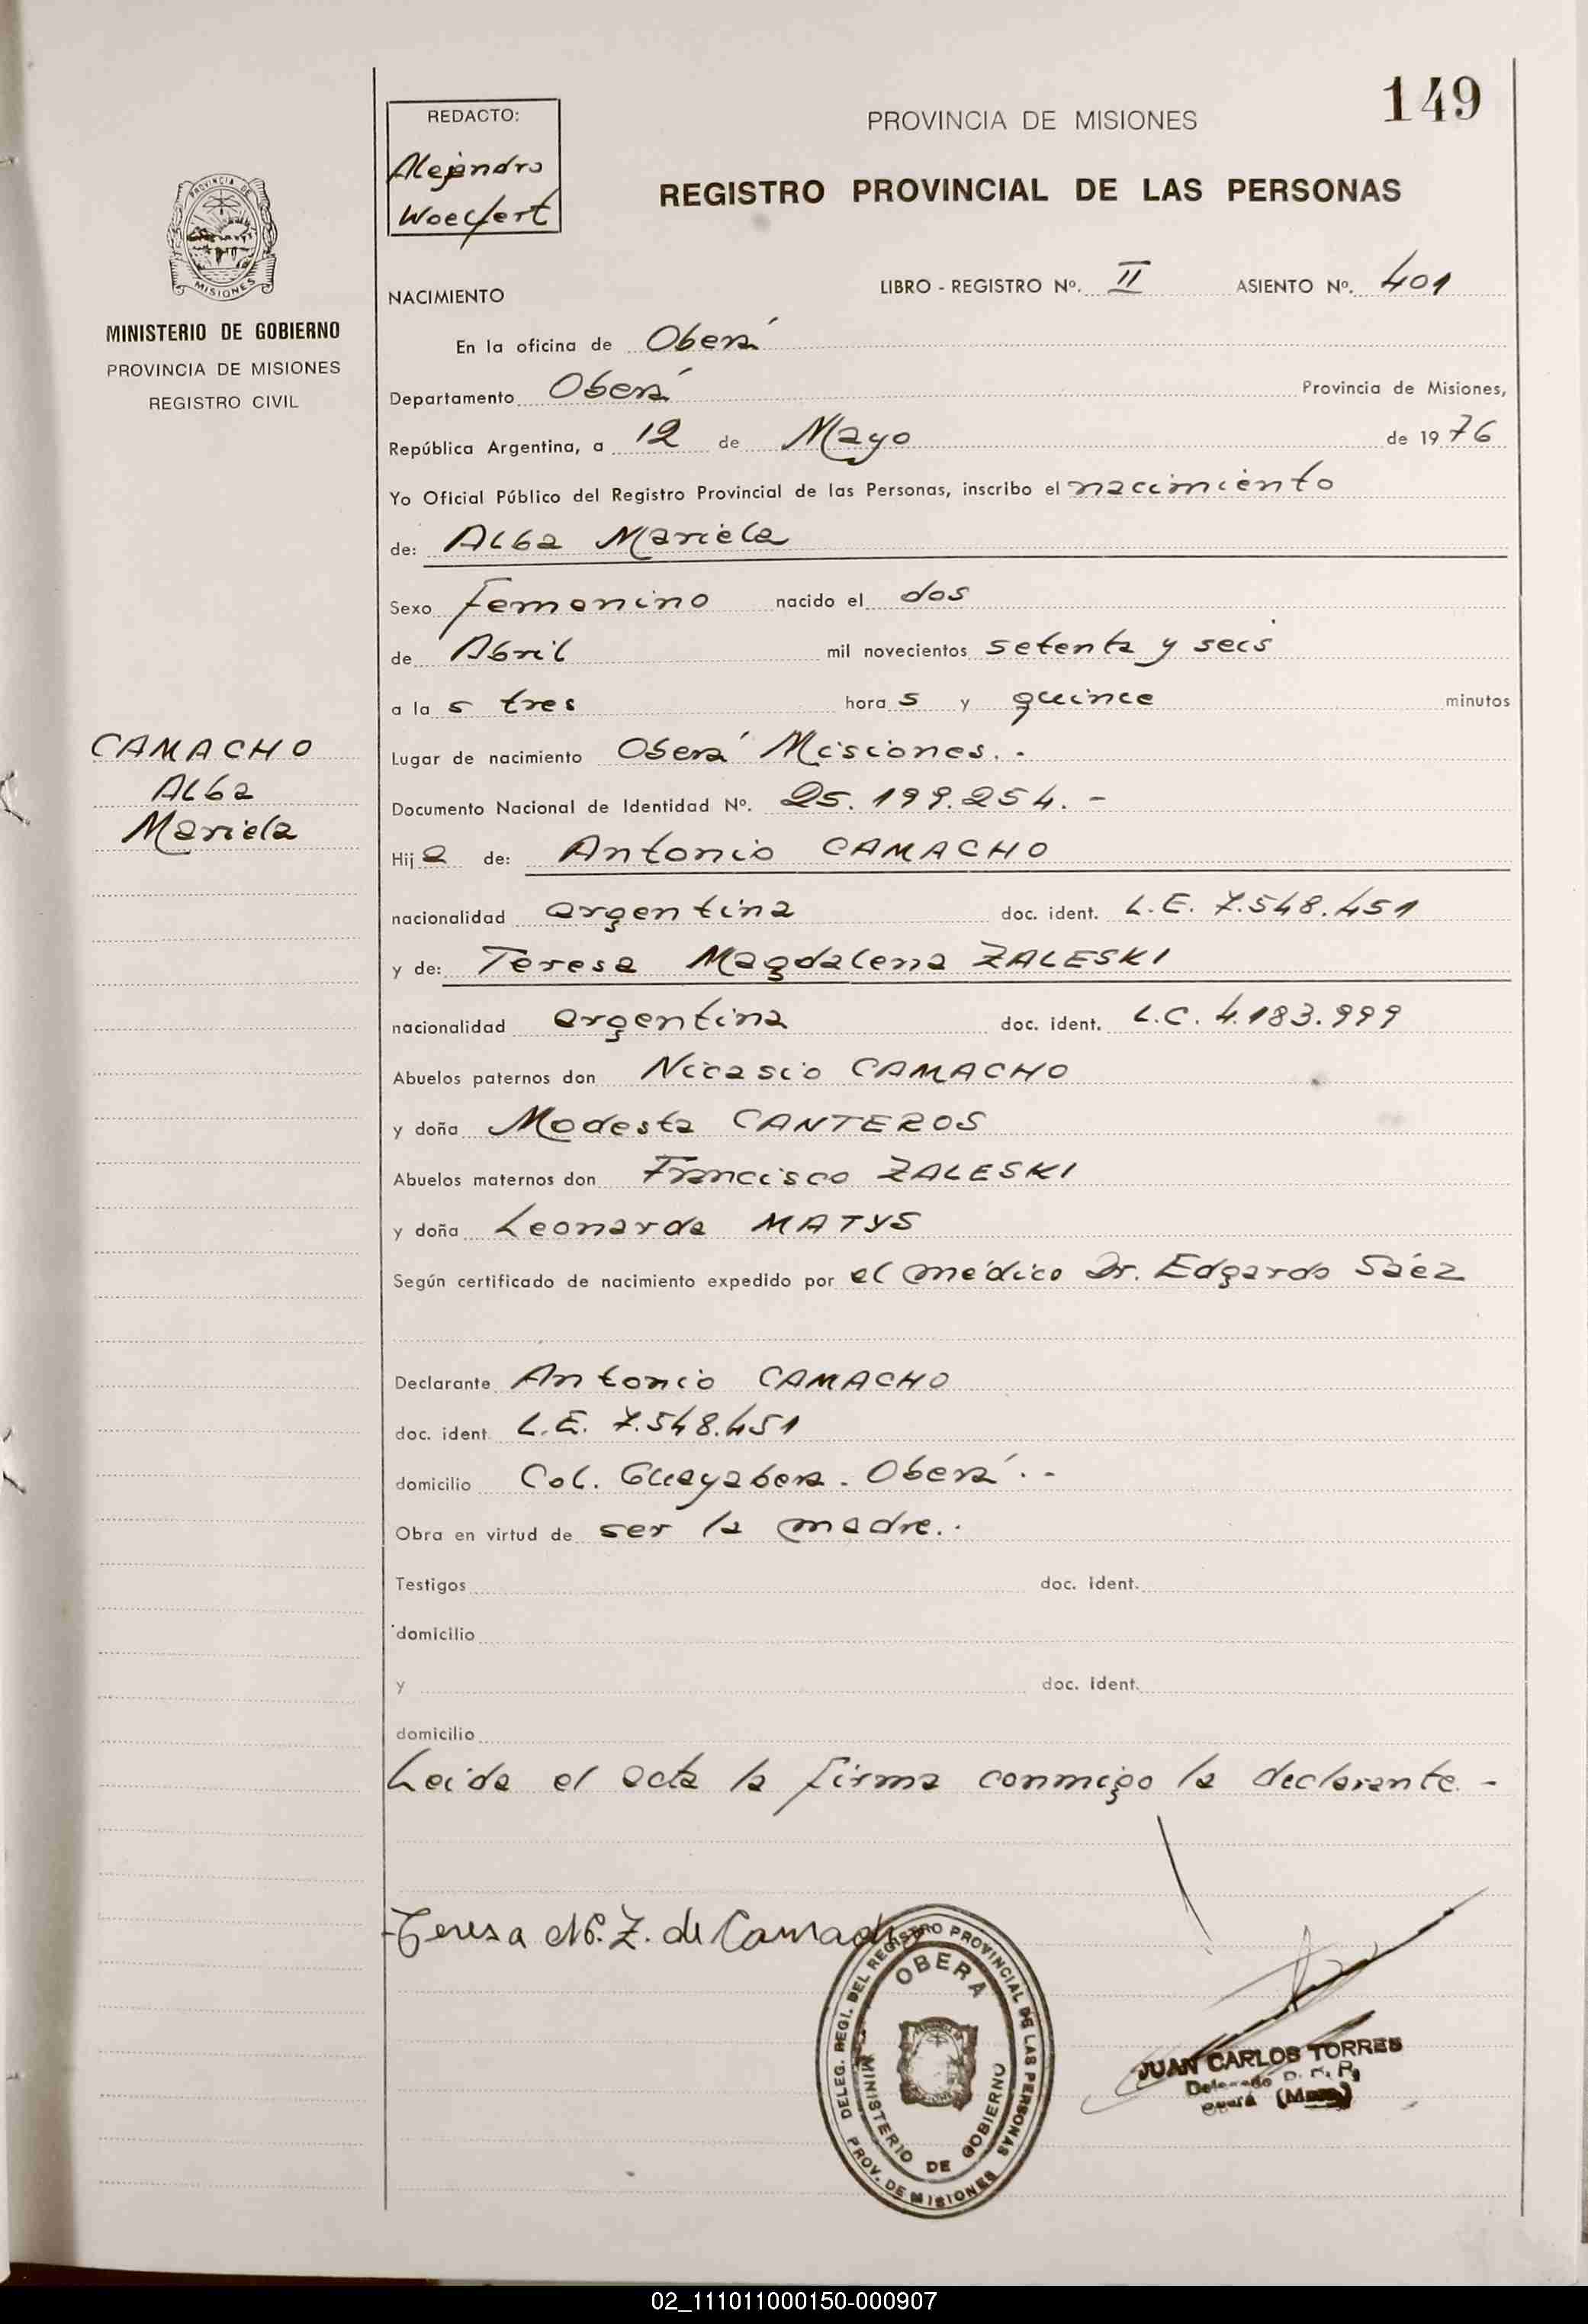 149
REDACTO:
Alejandro
Woecfert
PROVINCIA DE MISIONES
REGISTRO PROVINCIAL DE LAS PERSONAS
PROVINCIA DE
MISIONES
MINISTERIO DE GOBIERNO
PROVINCIA DE MISIONES
REGISTRO CIVIL
NACIMIENTO
LIBRO - REGISTRO Nº. II ASIENTO Nº. 401
En la oficina de Oberá
Departamento Oberá Provincia de Misiones,
República Argentina, a 12 de Mayo de 1976
Yo Oficial Público del Registro Provincial de las Personas, inscribo el nacimiento
de: Alba Mariela
Sexo Femenino nacido el dos
de Abril mil novecientos setenta y seis
a la s tres hora s y quince minutos
CAMACHO
Alba
Mariela
Lugar de nacimiento Oberá Misiones.-
Documento Nacional de Identidad Nº. 25.199.254.-
Hij a de: Antonio CAMACHO
nacionalidad argentina doc. ident. L.E. 7.548.451
y de: Teresa Magdalena ZALESKI
nacionalidad argentina doc. ident. L.C. 4.183.999
Abuelos paternos don Nicasio CAMACHO
y doña Modesta CANTEROS
Abuelos maternos don Francisco ZALESKI
y doña Leonarda MATYS
Según certificado de nacimiento expedido por el médico Dr. Edgardo Sáez
Declarante Antonio CAMACHO
doc. ident. L.E. 7.548.451
domicilio Col. Guayabera - Oberá.-
Obra en virtud de ser la madre.
Testigos doc. ident.
domicilio
y doc. ident.
domicilio
Leida el acta la firma conmigo la declarante.-
Teresa M. Z. de Camacho
DELEG. REGI. DEL REGISTRO PROVINCIAL DE LAS PERSONAS
OBERA
MINISTERIO DE GOBIERNO
PROV. DE MISIONES
JUAN CARLOS TORRES
Delegado
Oberá
02_111011000150-000907